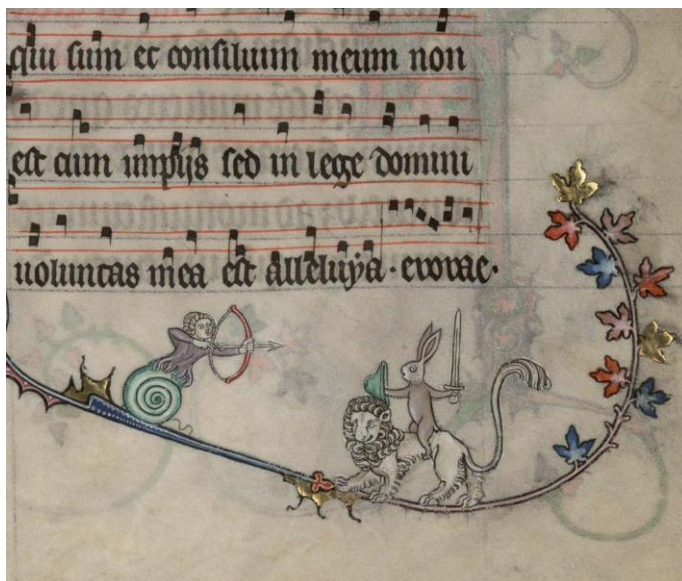 qui sum et consilium meum non
est cum impijs sed in lege domini
uoluntas mea est alleluya · evovae ·